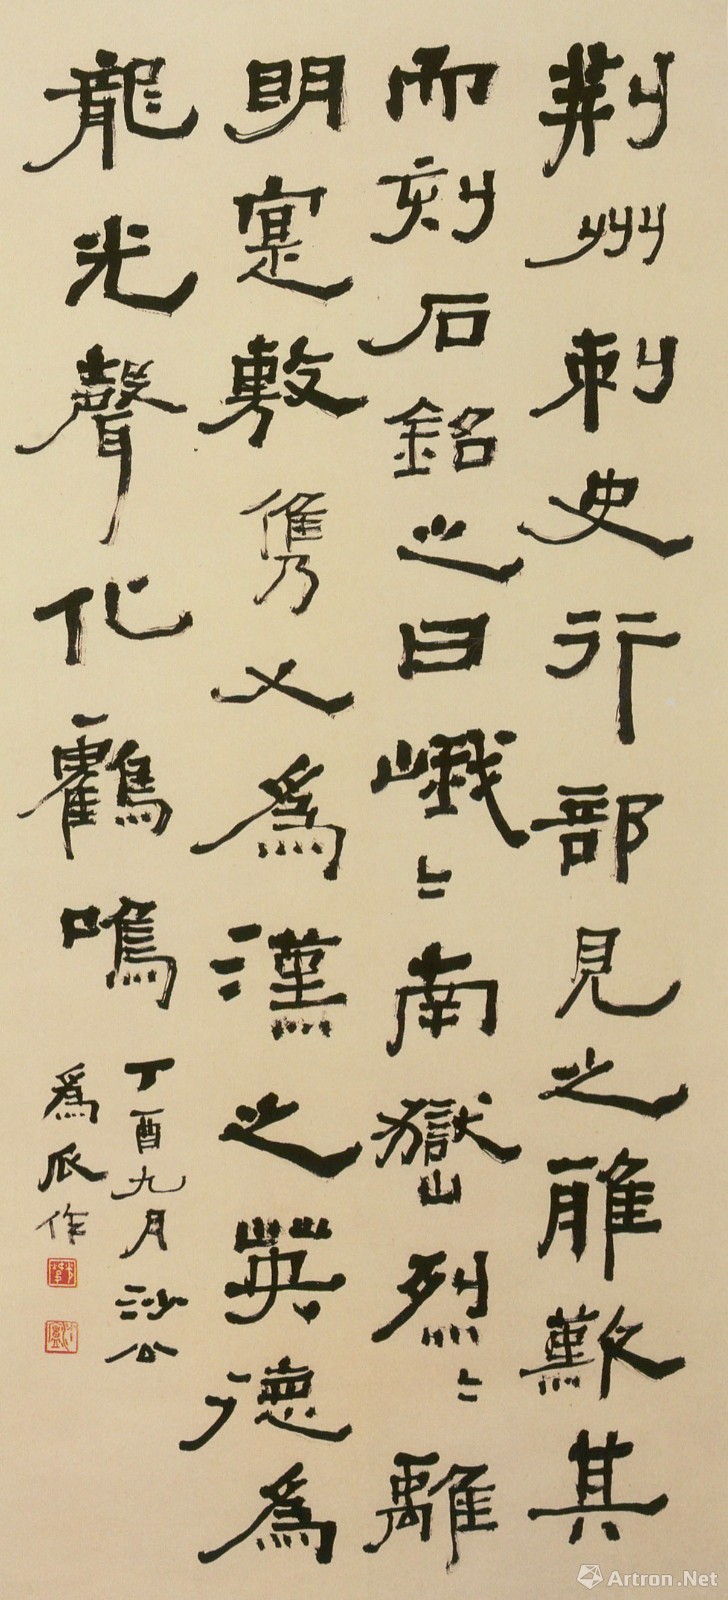 荆州刺史行部見之雅歎其
而刻石銘之曰峨〻南嶽烈〻離
明寔敷儁乂為漢之英德為
龍光聲化鸖鳴
丁酉九月沙公
為作
Artron.Net